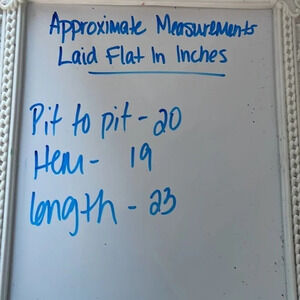 Approximate Measurements
Laid Flat In Inches
Pit to pit - 20
Hem - 19
length - 23